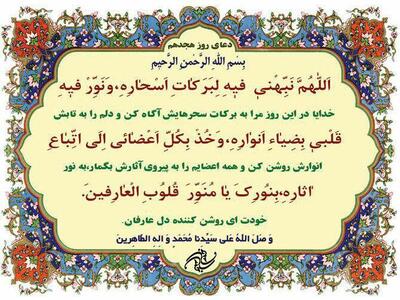 دعای روز هجدهم
بِسْمِ اللَّهِ الرَّحْمنِ الرَّحِيمِ
اَللّهُمَّ نَبِّهْنى فيهِ لِبَرَكاتِ اَسْحارِهِ، وَنَوِّرْ فيهِ
خدایا در این روز مرا به برکات سحرهایش آگاه کن و دلم را به تابش
قَلْبى بِضِياءِ اَنوارِهِ، وَخُذْ بِكُلِّ اَعْضائى اِلَى اتِّباعِ
انوارش روشن کن و همه اعضایم را به پیروی آثارش بگمار، به نور
اثارِهِ، بِنُورِكَ يا مُنَوِّرَ قُلُوبِ الْعارِفينَ.
خودت ای روشن کننده دل عارفان.
وَ صَلَ اللهُ عَلى سَیِّدنا مُحَمَدٍ وَ الِهِ الطّاهِرین